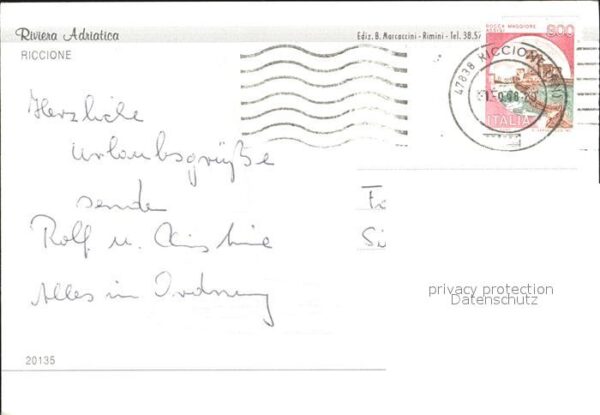 Riviera Adriatica
RICCIONE
Ediz. B. Marcaccini - Rimini - Tel. 38.5
ROCCA MAGGIORE
ASSISI
800
47838 RICCIONE
ITALIA
Herzliche
Urlaubsgrüße
senden
Rolf u. Christine
Alles in Ordnung
Fa
Si
privacy protection
Datenschutz
20135